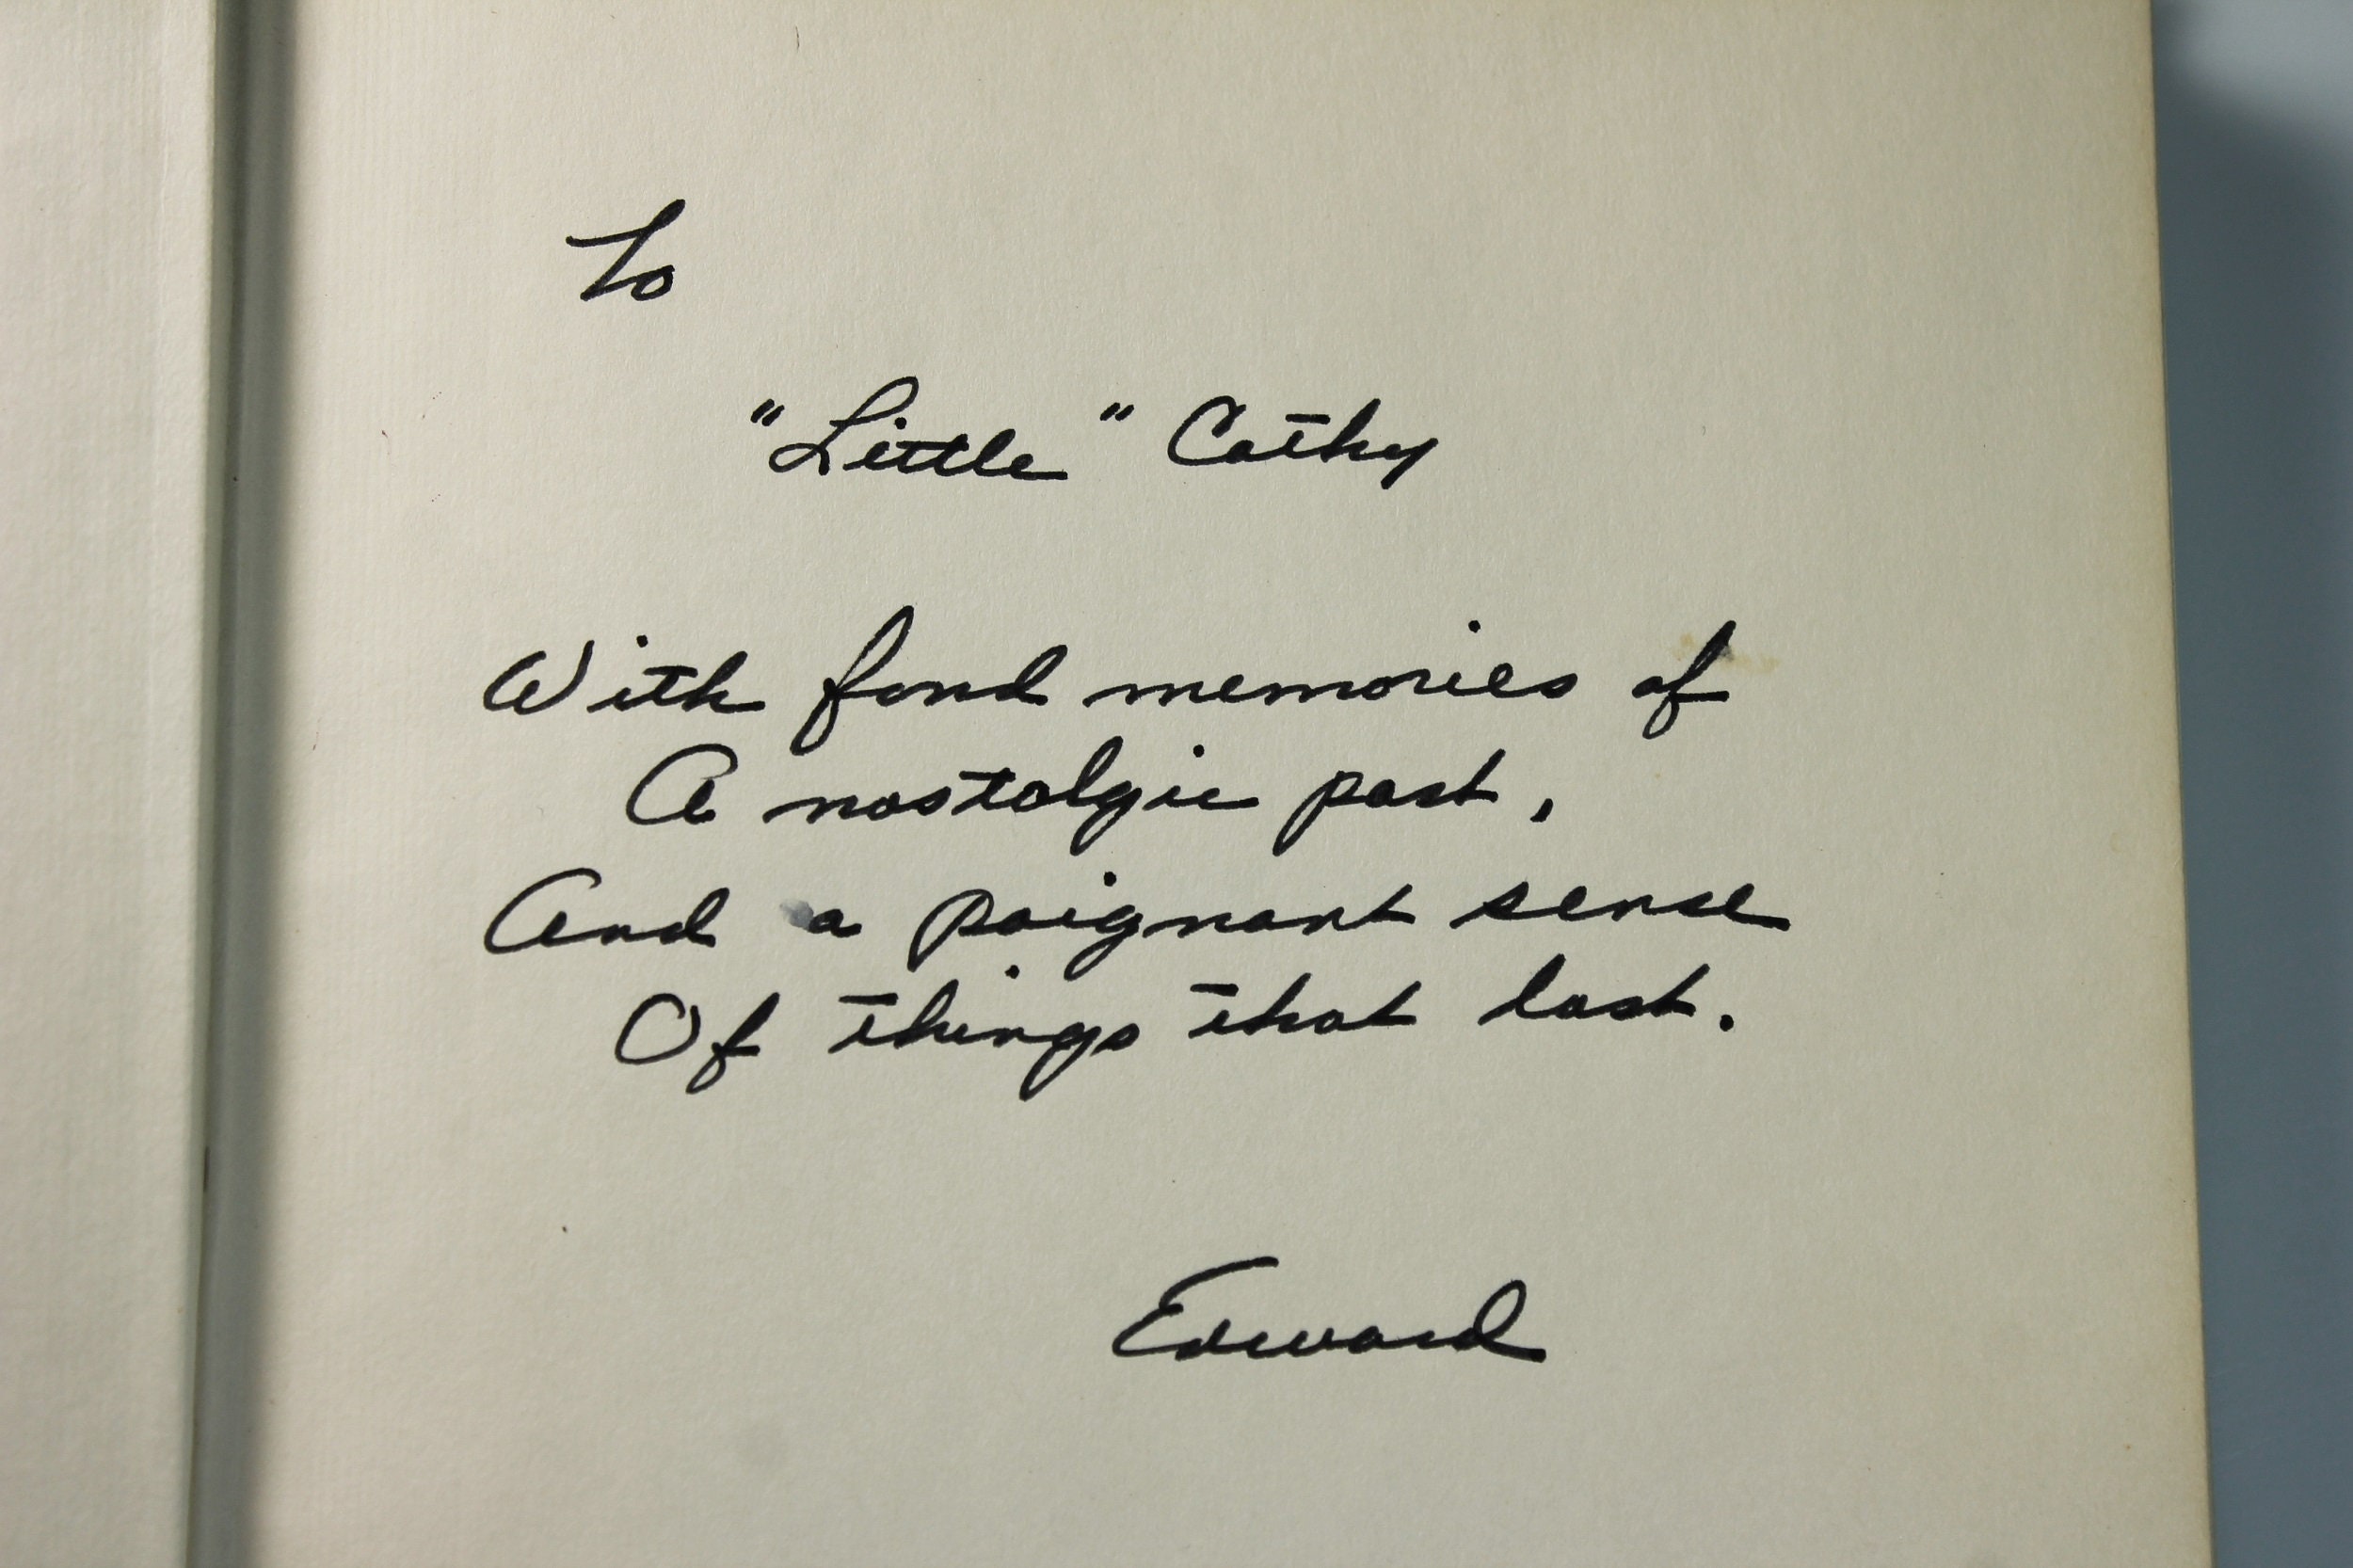 To
"Little" Cathy
With fond memories of
A nostalgic past,
And a poignant sense
Of things that last.
Edward